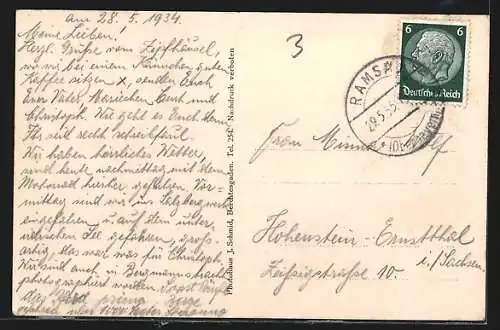 am 28. 5. 1934.
Meine Lieben!
Herzl. Grüße vom Zipfhäusel,
wo wir bei einem Kännchen guten
Kaffee sitzen, senden Euch
Euer Vater, Mariechen, und
Christoph. Wie geht es Euch denn?
Ihr seid recht
Wir haben herrliches Wetter,
sind heute nachmittag mit dem
Motorrad hierher gefahren. Vor-
mittag sind wir ins Salzbergwerk
eingefahren u. auf dem unter-
irdischen See gefahren, groß-
artig, das war was für Christoph.
Wir sind auch in Bergmannstracht
photographiert worden.
das
über 1000 Meter
Photohaus J. Schmid, Berchtesgaden. Tel. 254. Nachdruck verboten
3
6 6
Deutsches Reich
RAMSAU
29.5.
Frau Minna
Hohenstein-Ernstthal
i./Sachsen.
Leipzigstraße 10